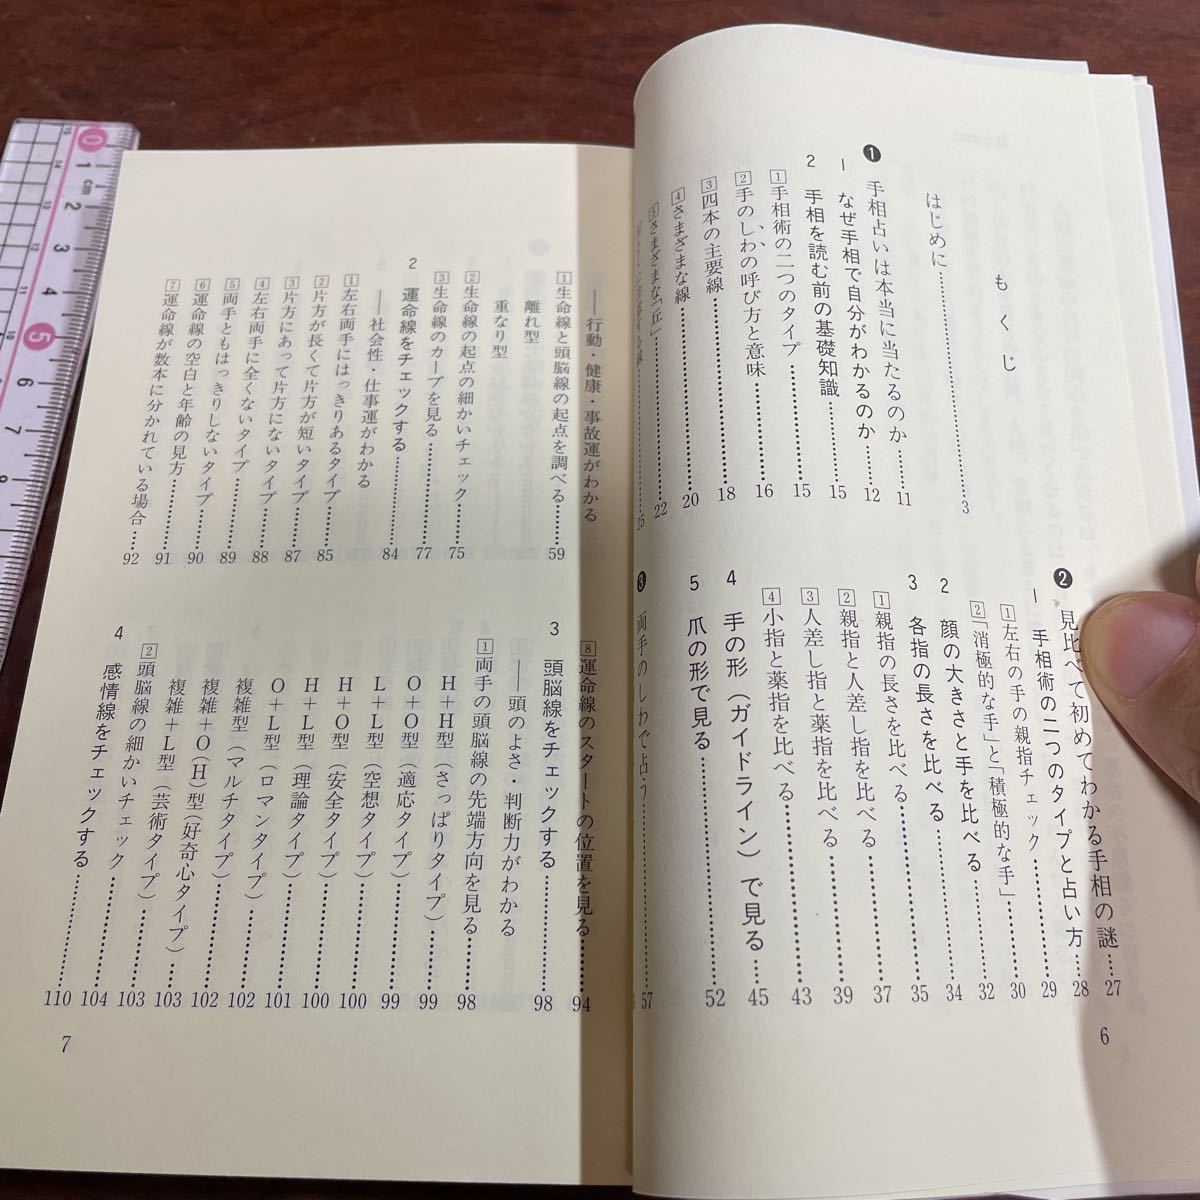 もくじ
はじめに……3
❶ 手相占いは本当に当たるのか……11
1 なぜ手相で自分がわかるのか……12
2 手相を読む前の基礎知識……15
1 手相術の二つのタイプ……15
2 手のしわの呼び方と意味……16
3 四本の主要線……18
4 さまざまな線……20
5 さまざまな「丘」……22
❷ 見比べて初めてわかる手相の謎……27
1 手相術の二つのタイプと占い方……28
1 左右の手の親指チェック……29
2 「消極的な手」と「積極的な手」……30
2 顔の大きさと手を比べる……32
3 各指の長さを比べる……34
1 親指の長さを比べる……35
2 親指と人差し指を比べる……37
3 人差し指と薬指を比べる……39
4 小指と薬指を比べる……43
4 手の形(ガイドライン)で見る……45
5 爪の形で見る……52
❸ 両手のしわで占う……57
6
――行動・健康・事故運がわかる
1 生命線と頭脳線の起点を調べる……59
離れ型
重なり型
2 生命線の起点の細かいチェック……75
3 生命線のカーブを見る……77
2 運命線をチェックする……84
――社会性・仕事運がわかる
1 左右両手にはっきりあるタイプ……85
2 片方が長くて片方が短いタイプ……87
3 片方にあって片方にないタイプ……88
4 左右両手に全くないタイプ……89
5 両手ともはっきりしないタイプ……90
6 運命線の空白と年齢の見方……91
7 運命線が数本に分かれている場合……92
8 運命線のスタートの位置を見る……94
3 頭脳線をチェックする……98
――頭のよさ・判断力がわかる
1 両手の頭脳線の先端方向を見る……98
H+H型(さっぱりタイプ)……99
O+O型(適応タイプ)……99
L+L型(空想タイプ)……100
H+O型(安全タイプ)……100
H+L型(理論タイプ)……101
O+L型(ロマンタイプ)……102
複雑型(マルチタイプ)……102
複雑+O(H)型(好奇心タイプ)……103
複雑+L型(芸術タイプ)……103
2 頭脳線の細かいチェック……104
4 感情線をチェックする……110
7
0 1 cm 2 3 4 5 6 7 8